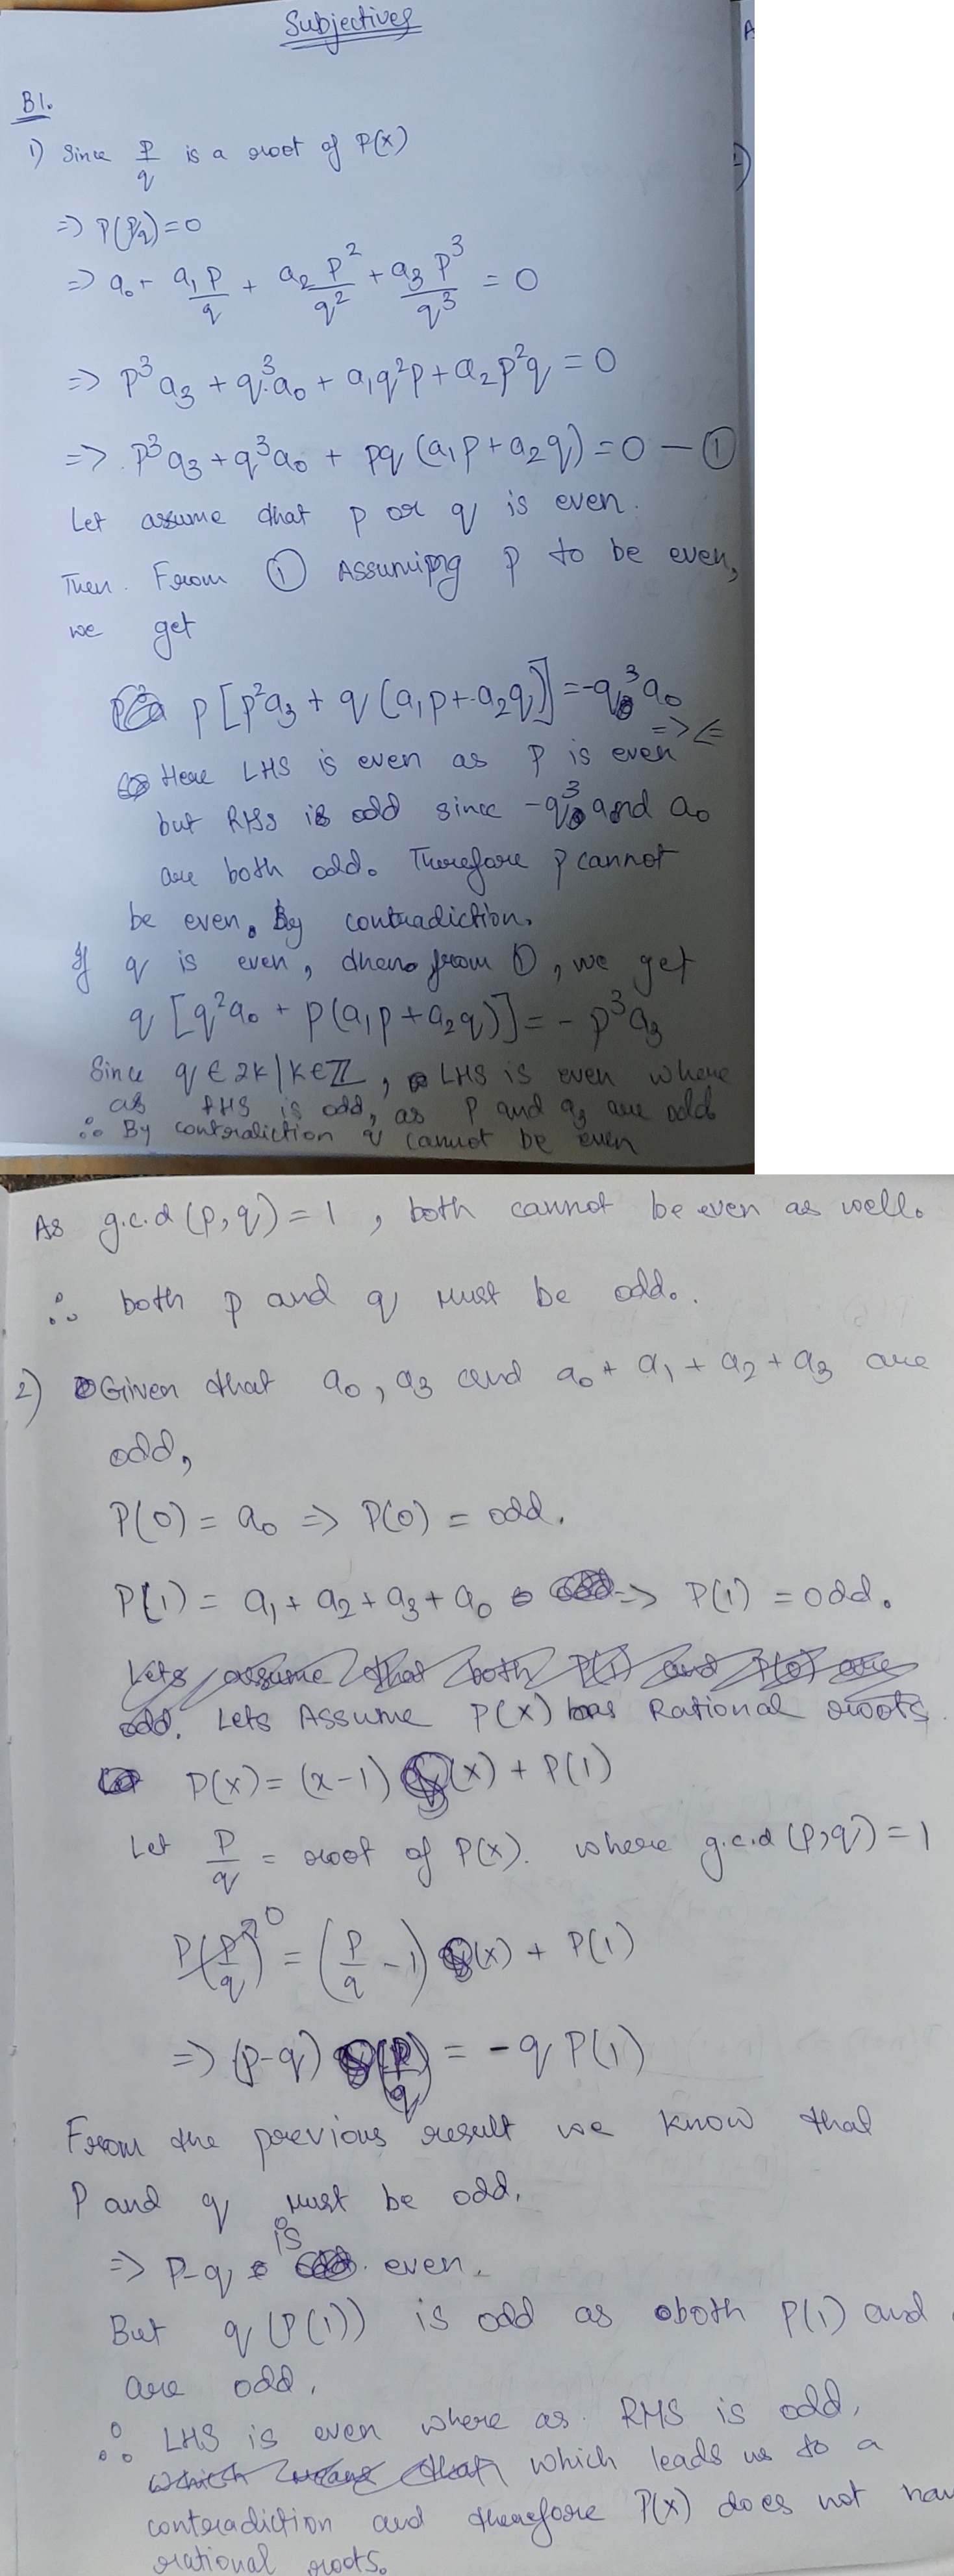 Subjectives
B1.
1) Since p/q is a root of P(x)
=> P(p/q)=0
=> a₀ + a₁p/q + a₂p²/q² + a₃p³/q³ = 0
=> p³a₃ + q³a₀ + a₁q²p + a₂p²q = 0
=> p³a₃ + q³a₀ + pq(a₁p + a₂q) = 0 — ①
Let assume that p or q is even.
Then. From ① Assuming p to be even,
we get
p[p²a₃ + q(a₁p + a₂q)] = -q³a₀
=><=
Here LHS is even as p is even
but RHS is odd since -q³ and a₀
are both odd. Therefore p cannot
be even. By contradiction.
If q is even, then from ①, we get
q[q²a₀ + p(a₁p + a₂q)] = -p³a₃
Since q ∈ 2k | k ∈ ℤ, LHS is even where
as RHS is odd, as p and a₃ are odd
∴ By contradiction q cannot be even
As g.c.d (p,q) = 1, both cannot be even as well.
∴ both p and q must be odd.
2) Given that a₀, a₃ and a₀ + a₁ + a₂ + a₃ are
odd,
P(0) = a₀ => P(0) = odd.
P(1) = a₁ + a₂ + a₃ + a₀ => P(1) = odd.
Lets assume that both P(1) and P(0) are
odd. Lets Assume P(x) has Rational roots.
P(x) = (x-1) (x) + P(1)
Let p/q = root of P(x). where g.c.d (p,q) = 1
P(p/q)⁰ = (p/q - 1) (x) + P(1)
=> (p-q) (p/q) = -q P(1)
From the previous result we know that
P and q must be odd.
=> p-q is even.
But q(P(1)) is odd as both P(1) and
are odd.
∴ LHS is even where as RHS is odd,
which means that which leads us to a
contradiction and therefore P(x) does not hav
rational roots.